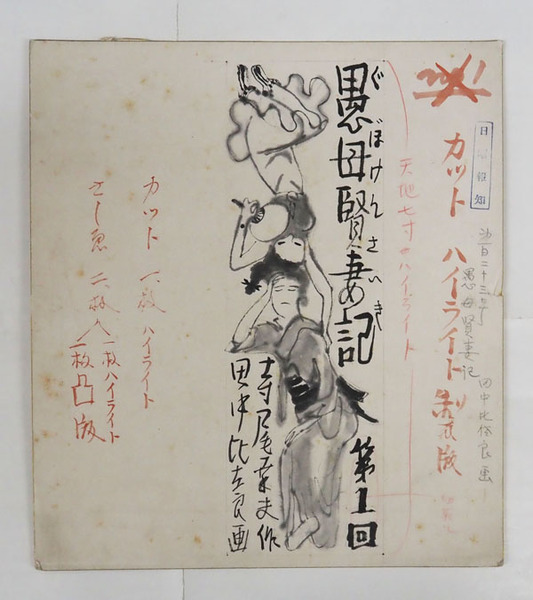 愚母賢妻記
田中比佐良画
カット ハイライト製版
天地七寸 ハイライト
ぐぼけんさいき
愚母賢妻記 第1回
寺尾幸夫作
田中比左良画
カット 一枚 ハイライト
さし画 二枚
一枚ハイライト
一枚凸版